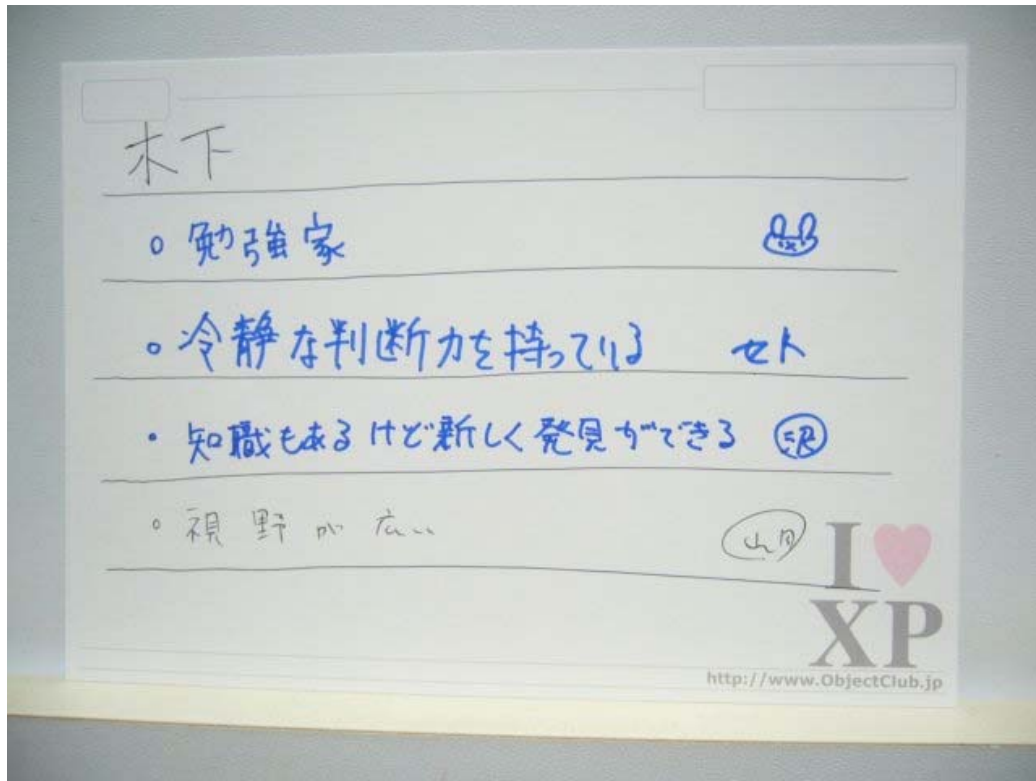 木下
○ 勉強家
○ 冷静な判断力を持っている セト
・ 知識もあるけど新しく発見ができる 沢
○ 視野が広い
I ♥
XP
http://www.ObjectClub.jp